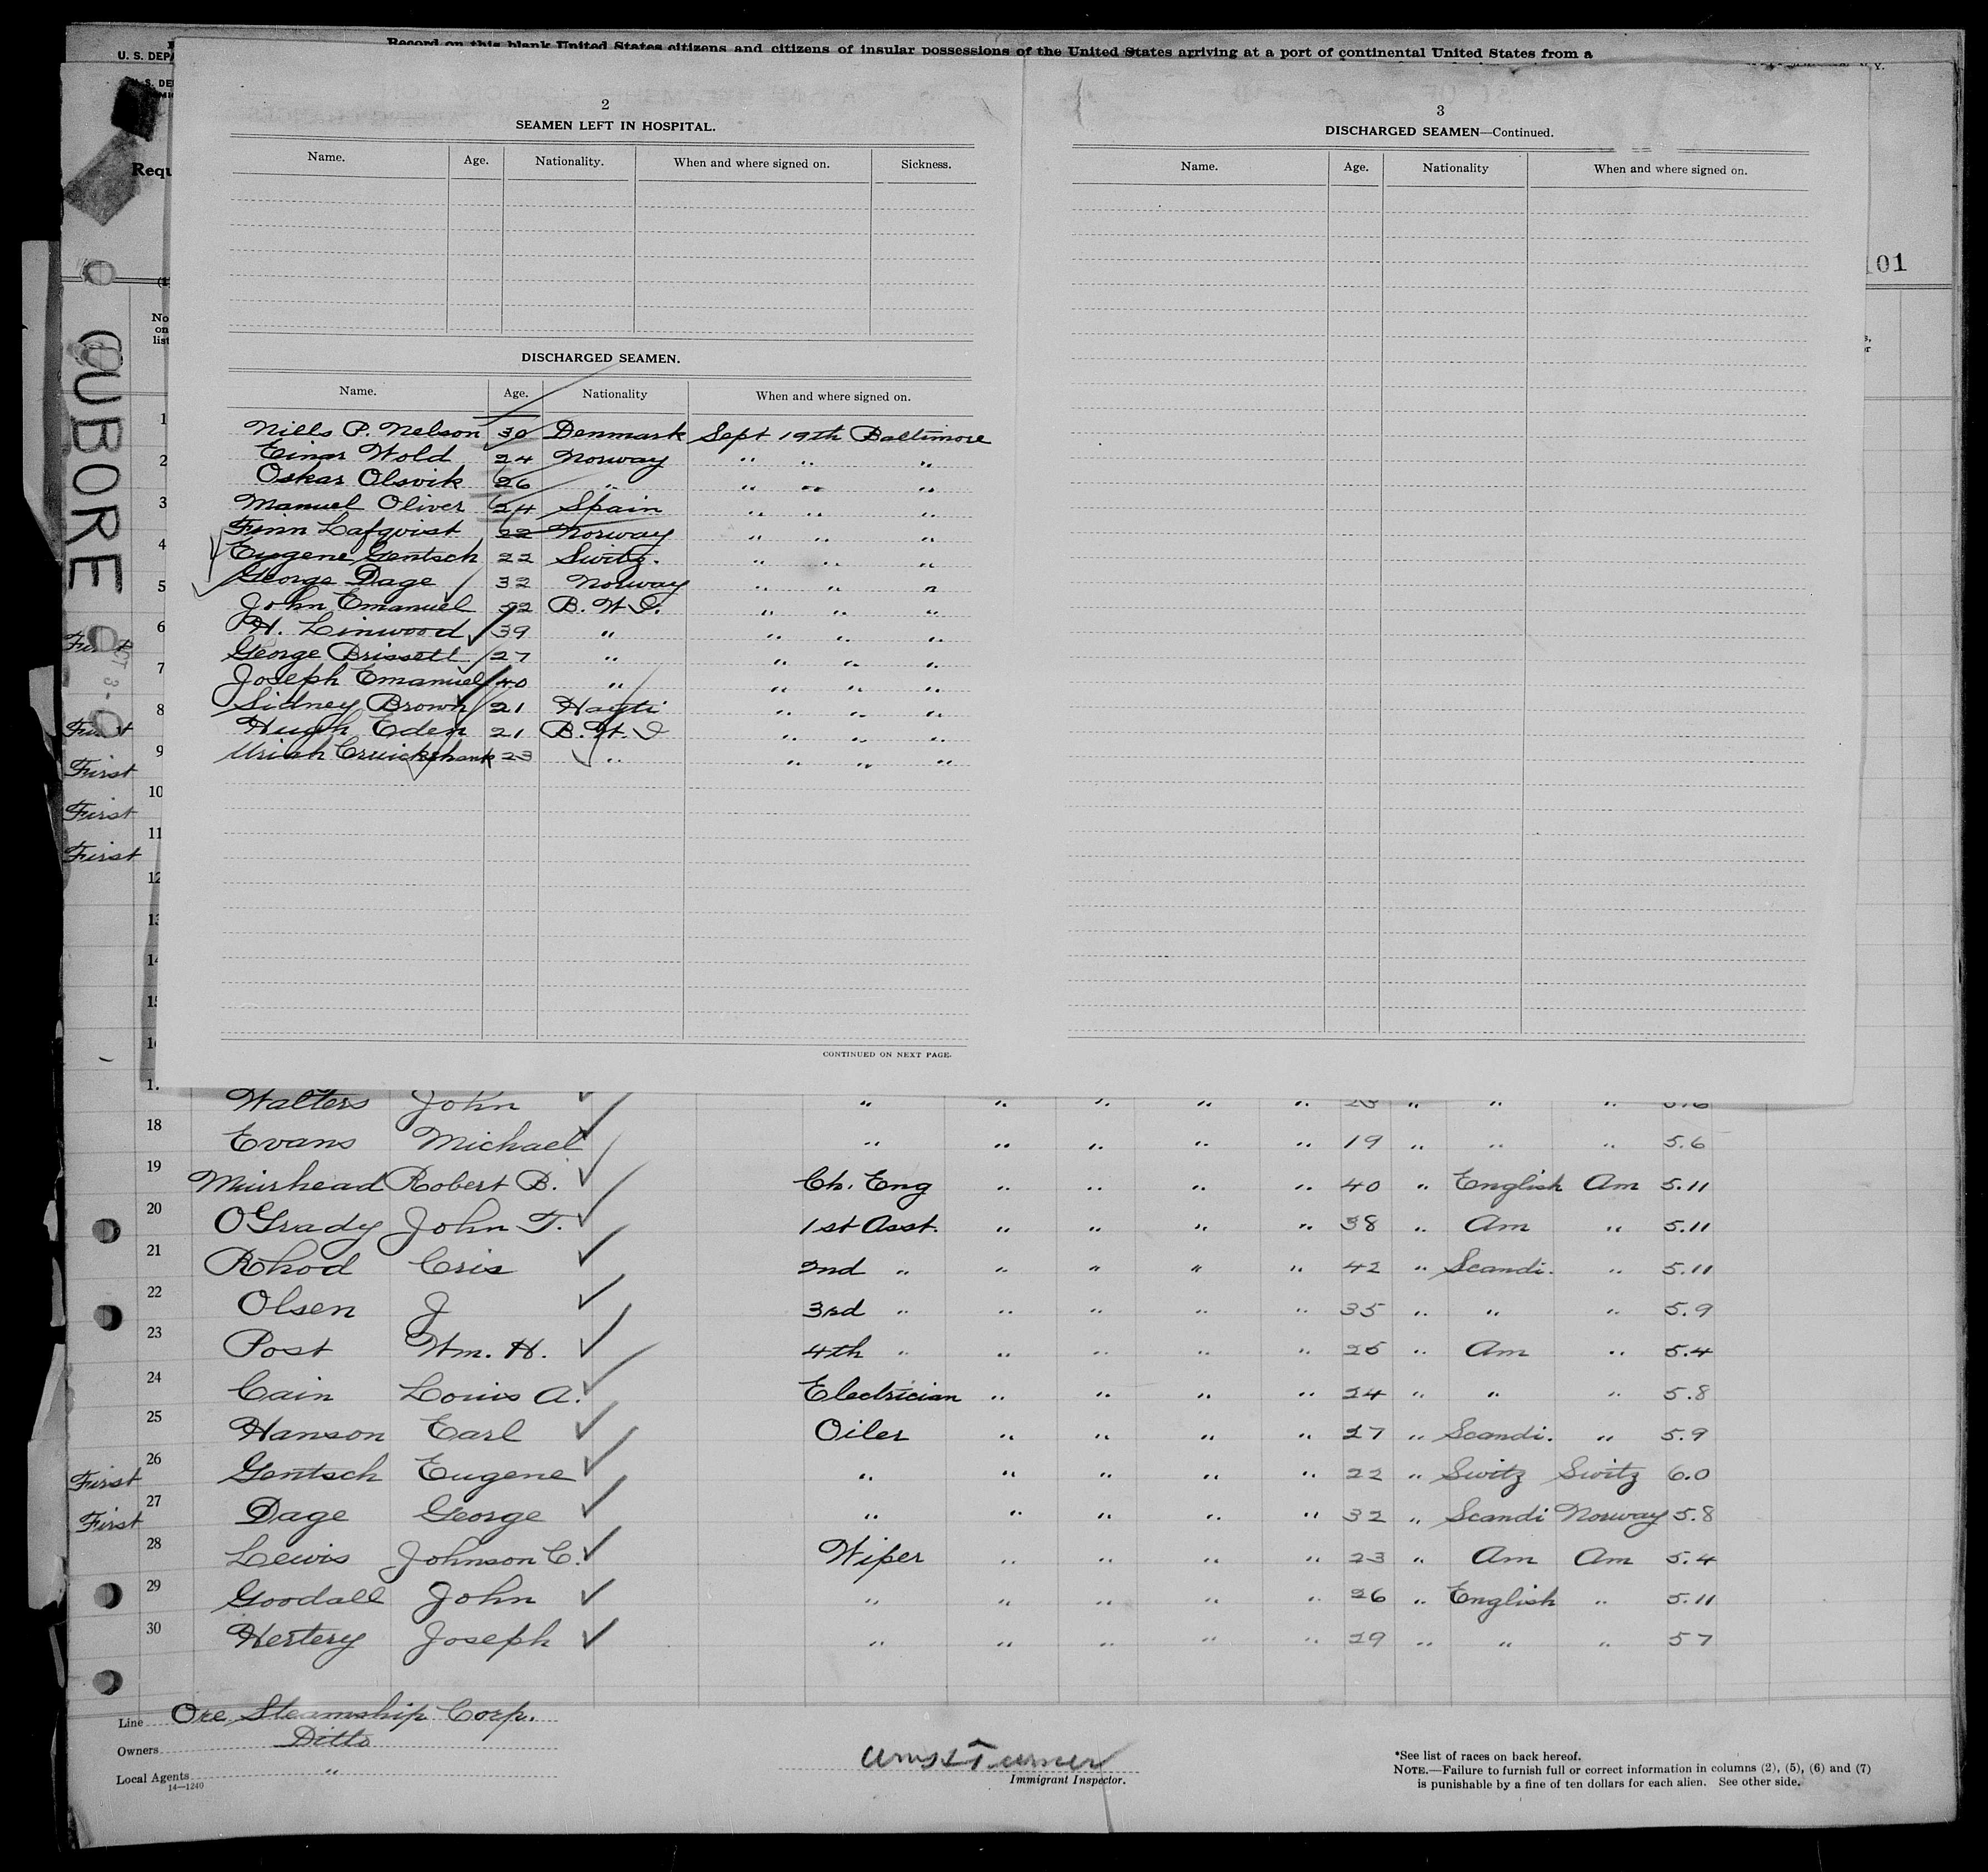 Record on this blank United States citizens and citizens of insular possessions of the United States arriving at a port of continental United States from a
U. S. DEPA
S. DE
N. Y.
Requ
101
No
on
list
CUBORE
2
SEAMEN LEFT IN HOSPITAL.
Name. Age. Nationality. When and where signed on. Sickness.
DISCHARGED SEAMEN.
Name. Age. Nationality When and where signed on.
Niels P. Nelson 30 Denmark Sept 19th Baltimore
Einar Wold 24 Norway " " "
Oskar Olsvik 26 " " " "
Manuel Oliver 24 Spain " " "
Finn Lafqvist 22 Norway " " "
Eugene Gentsch 22 Switz. " " "
George Dage 32 Norway " " "
John Emanuel B. W. I. " " "
H. Linwood 39 " " " "
George Brissett 27 " " " "
Joseph Emanuel 40 " " " "
Sidney Brown 21 Hayti " " "
Hugh Eden 21 B. W. I " " "
Uriah Cruickshank 23 " " " "
CONTINUED ON NEXT PAGE.
3
DISCHARGED SEAMEN—Continued.
Name. Age. Nationality When and where signed on.
1
2
3
4
5
6
7
First 8
First 9
First 10
First 11
12
13
14
15
16
Walters John " " " " " " " "
18 Evans Michael " " " " " 19 " " " 5.6
19 Muirhead Robert B. Ch. Eng " " " " 40 " English Am 5.11
20 OGrady John T. 1st Asst. " " " " 38 " Am " 5.11
21 Rhod Cris 2nd " " " " " 42 " Scandi. " 5.11
22 Olsen J 3rd " " " " " 35 " " " 5.9
23 Post Wm. H. 4th " " " " " 25 " Am " 5.4
24 Cain Louis A. Electrician " " " " 24 " " " 5.8
25 Hanson Earl Oiler " " " " 27 " Scandi. " 5.9
First 26 Gentsch Eugene " " " " " 22 " Switz Switz 6.0
First 27 Dage George " " " " " 32 " Scandi Norway 5.8
28 Lewis Johnson C. Wiper " " " " 23 " Am Am 5.4
29 Goodall John " " " " " 26 " English " 5.11
30 Hertery Joseph " " " " " 29 " " " 5 7
Line Ore Steamship Corp.
Owners Ditto
Local Agents "
14—1240
Immigrant Inspector.
*See list of races on back hereof.
NOTE.—Failure to furnish full or correct information in columns (2), (5), (6) and (7)
is punishable by a fine of ten dollars for each alien. See other side.